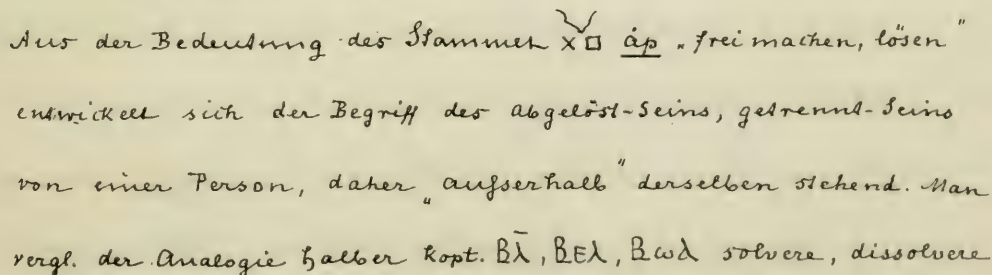 Aus der Bedeutung des Stammes áp „freimachen, lösen"
entwickelt sich der Begriff des abgelöst-Seins, getrennt-Seins
von einer Person, daher „aufserhalb" derselben stehend. Man
vergl. der Analogie halber kopt. ⲃⲗ̄, ⲃⲉⲗ, ⲃⲱⲗ solvere, dissolvere